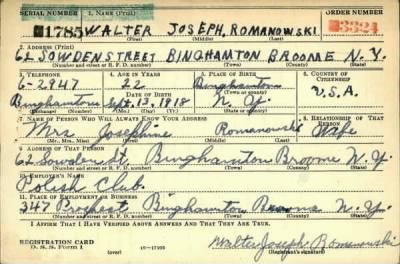 SERIAL NUMBER 1. NAME (Print) ORDER NUMBER
1785 WALTER JOSEPH, ROMANOWSKI 3324
(First) (Middle) (Last)
2. ADDRESS (Print)
62 SOWDEN STREET BINGHAMTON BROOME N.Y.
(Number and street or R. F. D. number) (Town) (County) (State)
3. TELEPHONE 4. AGE IN YEARS 5. PLACE OF BIRTH 6. COUNTRY OF CITIZENSHIP
6-2947 22 Binghamton
DATE OF BIRTH (Town or county) U.S.A.
Binghamton Sept. 13, 1918 N.Y.
(Exchange) (Number) (Mo.) (Day) (Yr.) (State or country)
7. NAME OF PERSON WHO WILL ALWAYS KNOW YOUR ADDRESS 8. RELATIONSHIP OF THAT PERSON
Mrs Josephine Romanowski Wife
(Mr., Mrs., Miss) (First) (Middle) (Last)
9. ADDRESS OF THAT PERSON
62 Sowden St Binghamton Broome N.Y.
(Number and street or R. F. D. number) (Town) (County) (State)
10. EMPLOYER'S NAME
Polish Club.
11. PLACE OF EMPLOYMENT OR BUSINESS
347 Prospect Binghamton Broome N.Y.
(Number and street or R. F. D. number) (Town) (County) (State)
I AFFIRM THAT I HAVE VERIFIED ABOVE ANSWERS AND THAT THEY ARE TRUE.
REGISTRATION CARD
D. S. S. FORM 1 (over) 16—17105 Walter Joseph Romanowski
(Registrant's signature)